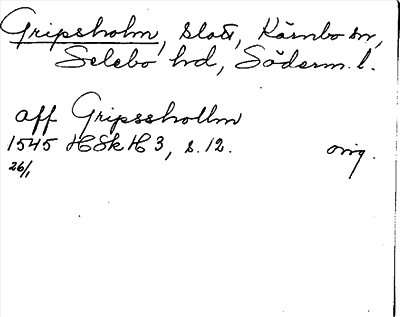 Gripsholm, slott, Kärnbo sn,
Selebo hd, Söderm. l.
aff Gripssholm
1545 HSkH 3, s. 12. orig.
26/1